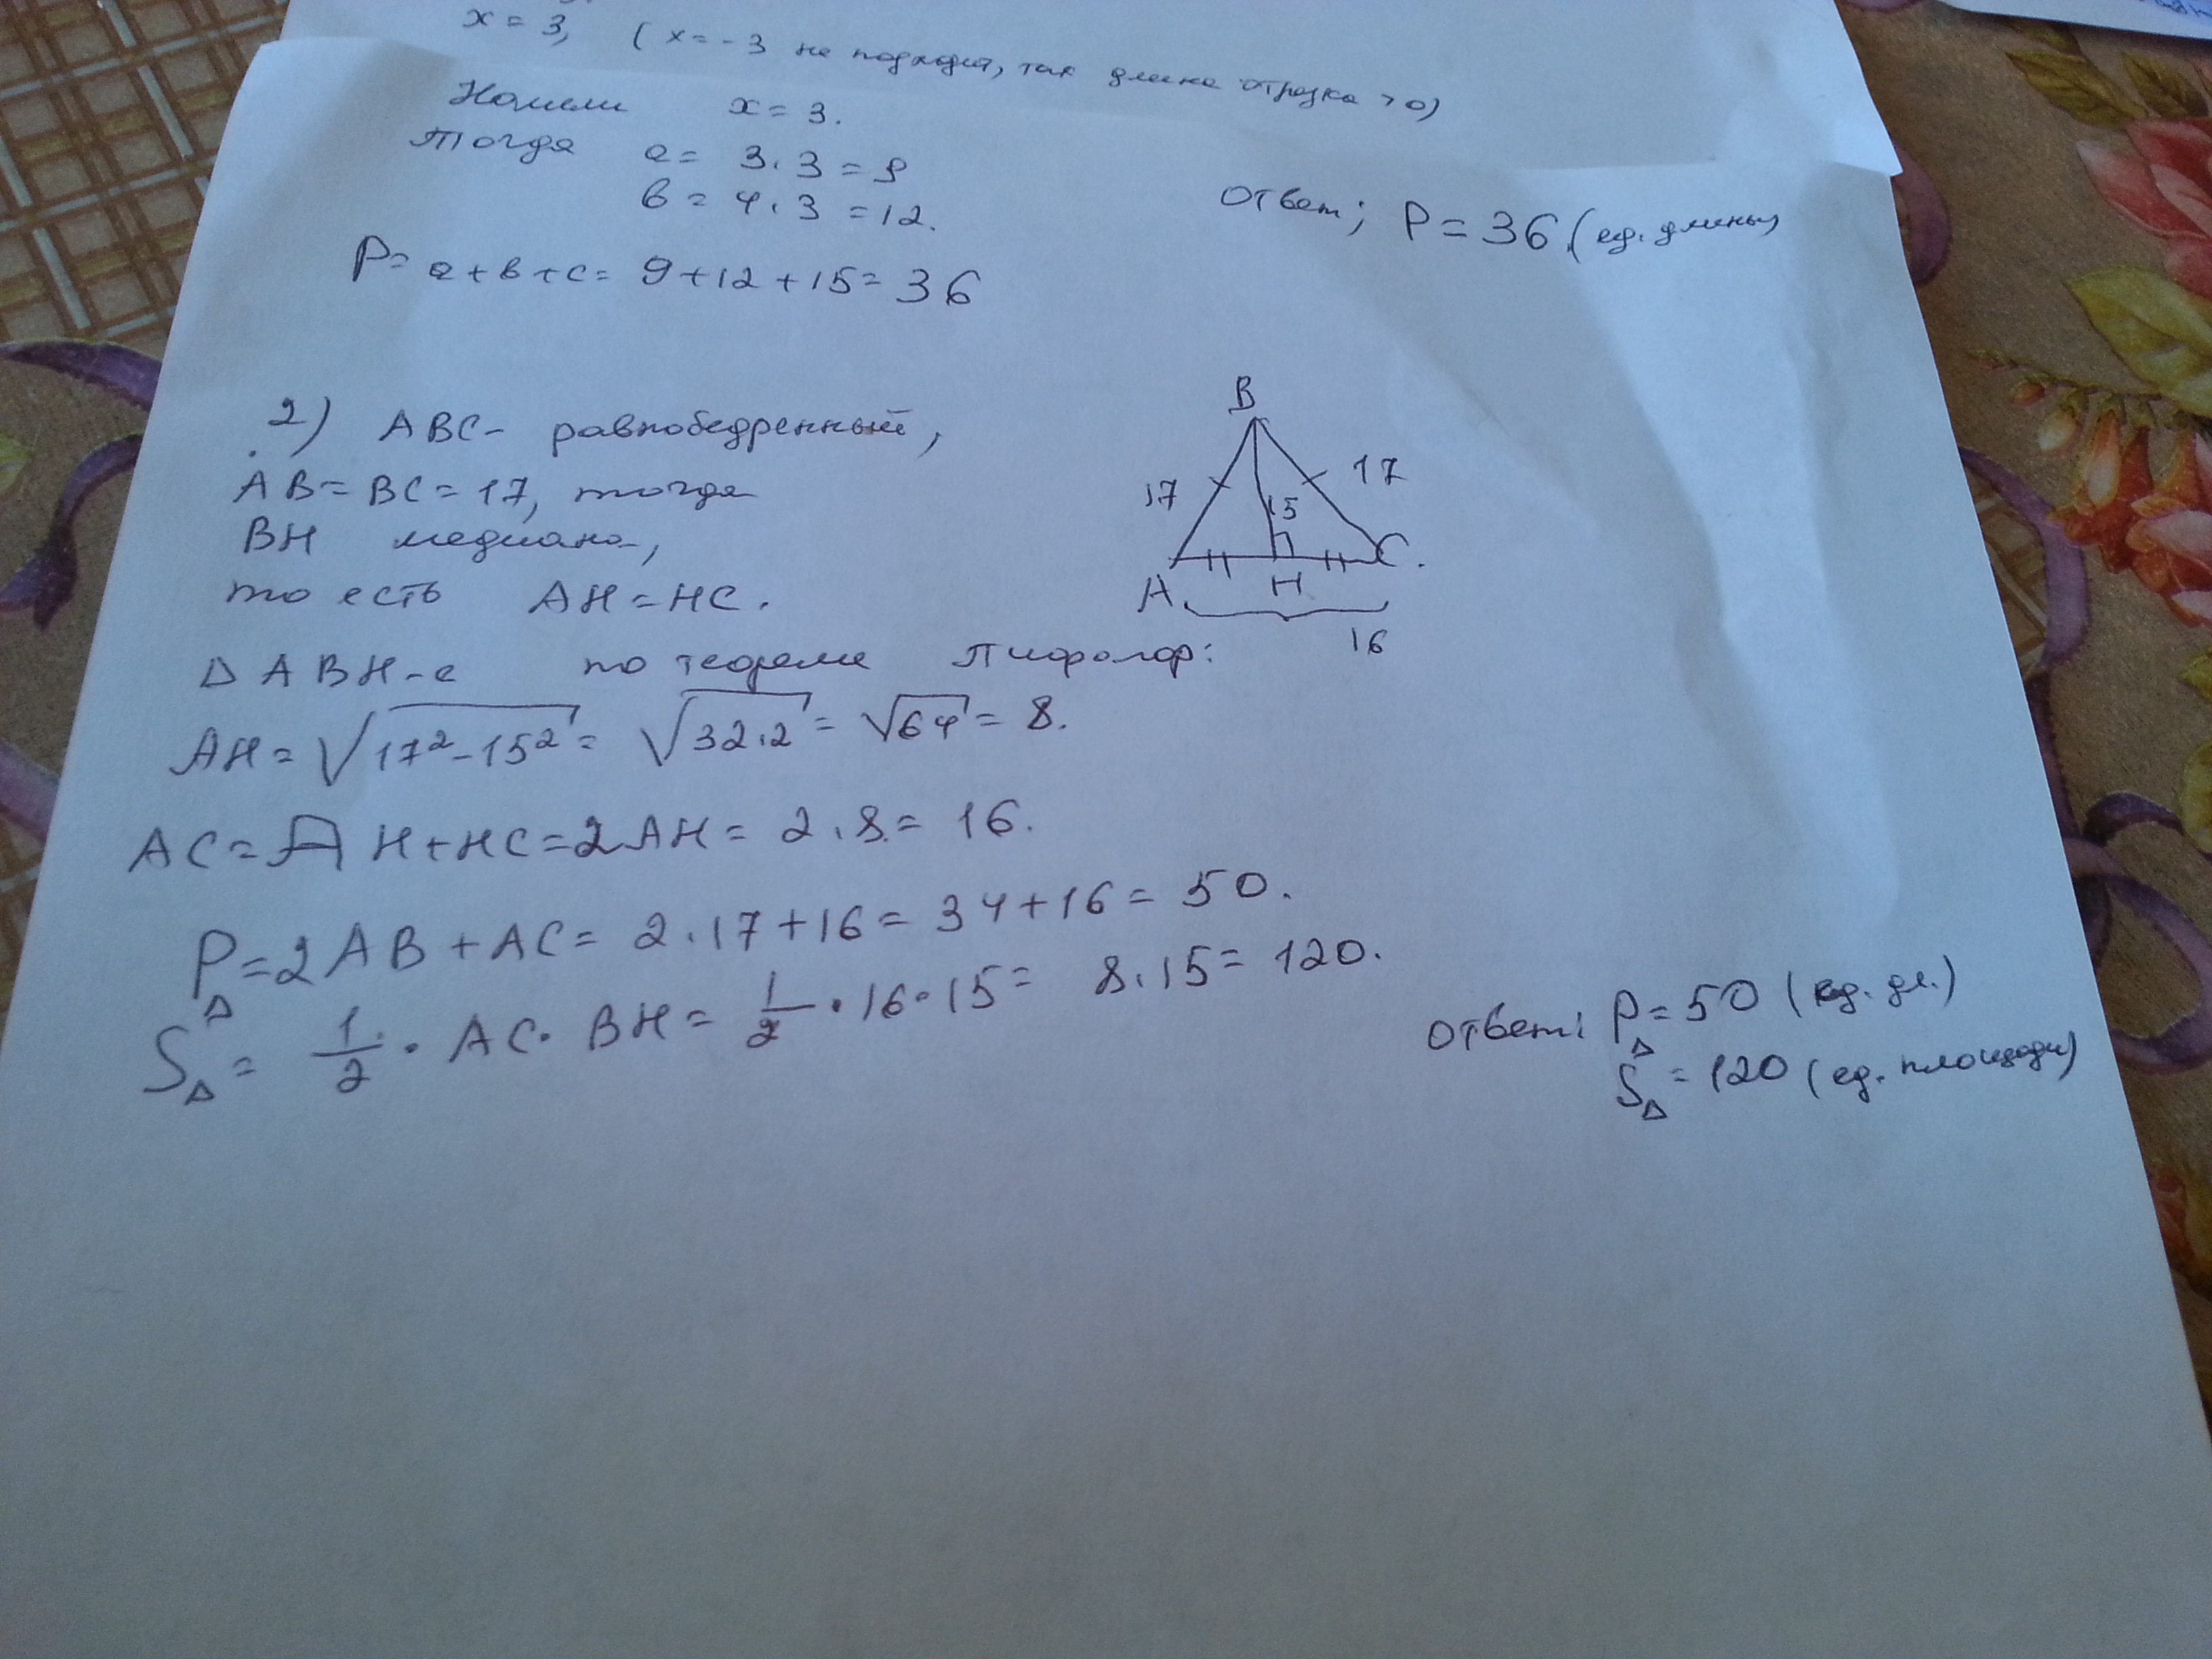 x = 3, ( x = -3 не подходит, так длина отрезка > 0)
Нашли x = 3.
Тогда a = 3 · 3 = 9
b = 4 · 3 = 12.
P = a + b + c = 9 + 12 + 15 = 36
Ответ; P = 36 (ед. длины)
2) ABC - равнобедренный,
AB = BC = 17, тогда
BH медиана,
то есть AH = HC.
B
17
17
15
A
H
C.
16
Δ ABH - е по теореме Пифагор:
AH = √(17² - 15²) = √(32 · 2) = √64 = 8.
AC = AH + HC = 2AH = 2 · 8 = 16.
P△ = 2AB + AC = 2 · 17 + 16 = 34 + 16 = 50.
S△ = 1/2 · AC · BH = 1/2 · 16 · 15 = 8 · 15 = 120.
Ответ: P△ = 50 (ед. дл.)
S△ = 120 (ед. площади)